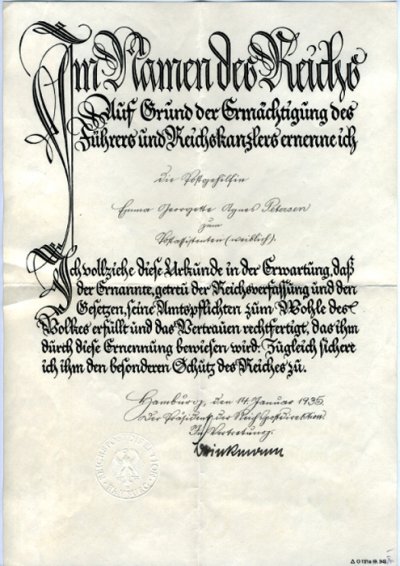 Im Namen des Reichs
Auf Grund der Ermächtigung des
Führers und Reichskanzlers ernenne ich
die Postgehilfin
Emma Georgette Agnes Petersen
zum
Postassistenten (weiblich).
Ich vollziehe diese Urkunde in der Erwartung, daß
der Ernannte, getreu der Reichsverfassung und den
Gesetzen, seine Amtspflichten zum Wohle des
Volkes erfüllt und das Vertrauen rechtfertigt, das ihm
durch diese Ernennung bewiesen wird. Zugleich sichere
ich ihm den besonderen Schutz des Reiches zu.
Hamburg, den 14. Januar 1935
Der Präsident der Reichspostdirektion
In Vertretung.
Brinkmann